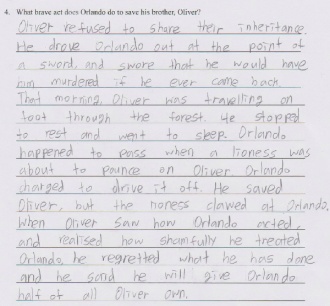 4. What brave act does Orlando do to save his brother, Oliver?
Oliver refused to share their inheritance.
He drove Orlando out at the point of
a sword, and swore that he would have
him murdered if he ever came back.
That morning, Oliver was travelling on
foot through the forest. He stopped
to rest and went to sleep. Orlando
happened to pass when a lioness was
about to pounce on Oliver. Orlando
charged to drive it off. He saved
Oliver, but the lioness clawed at Orlando.
When Oliver saw how Orlando acted,
and realised how shamfully he treated
Orlando, he regretted what he has done
and he said he will give Orlando
half of all Oliver own.